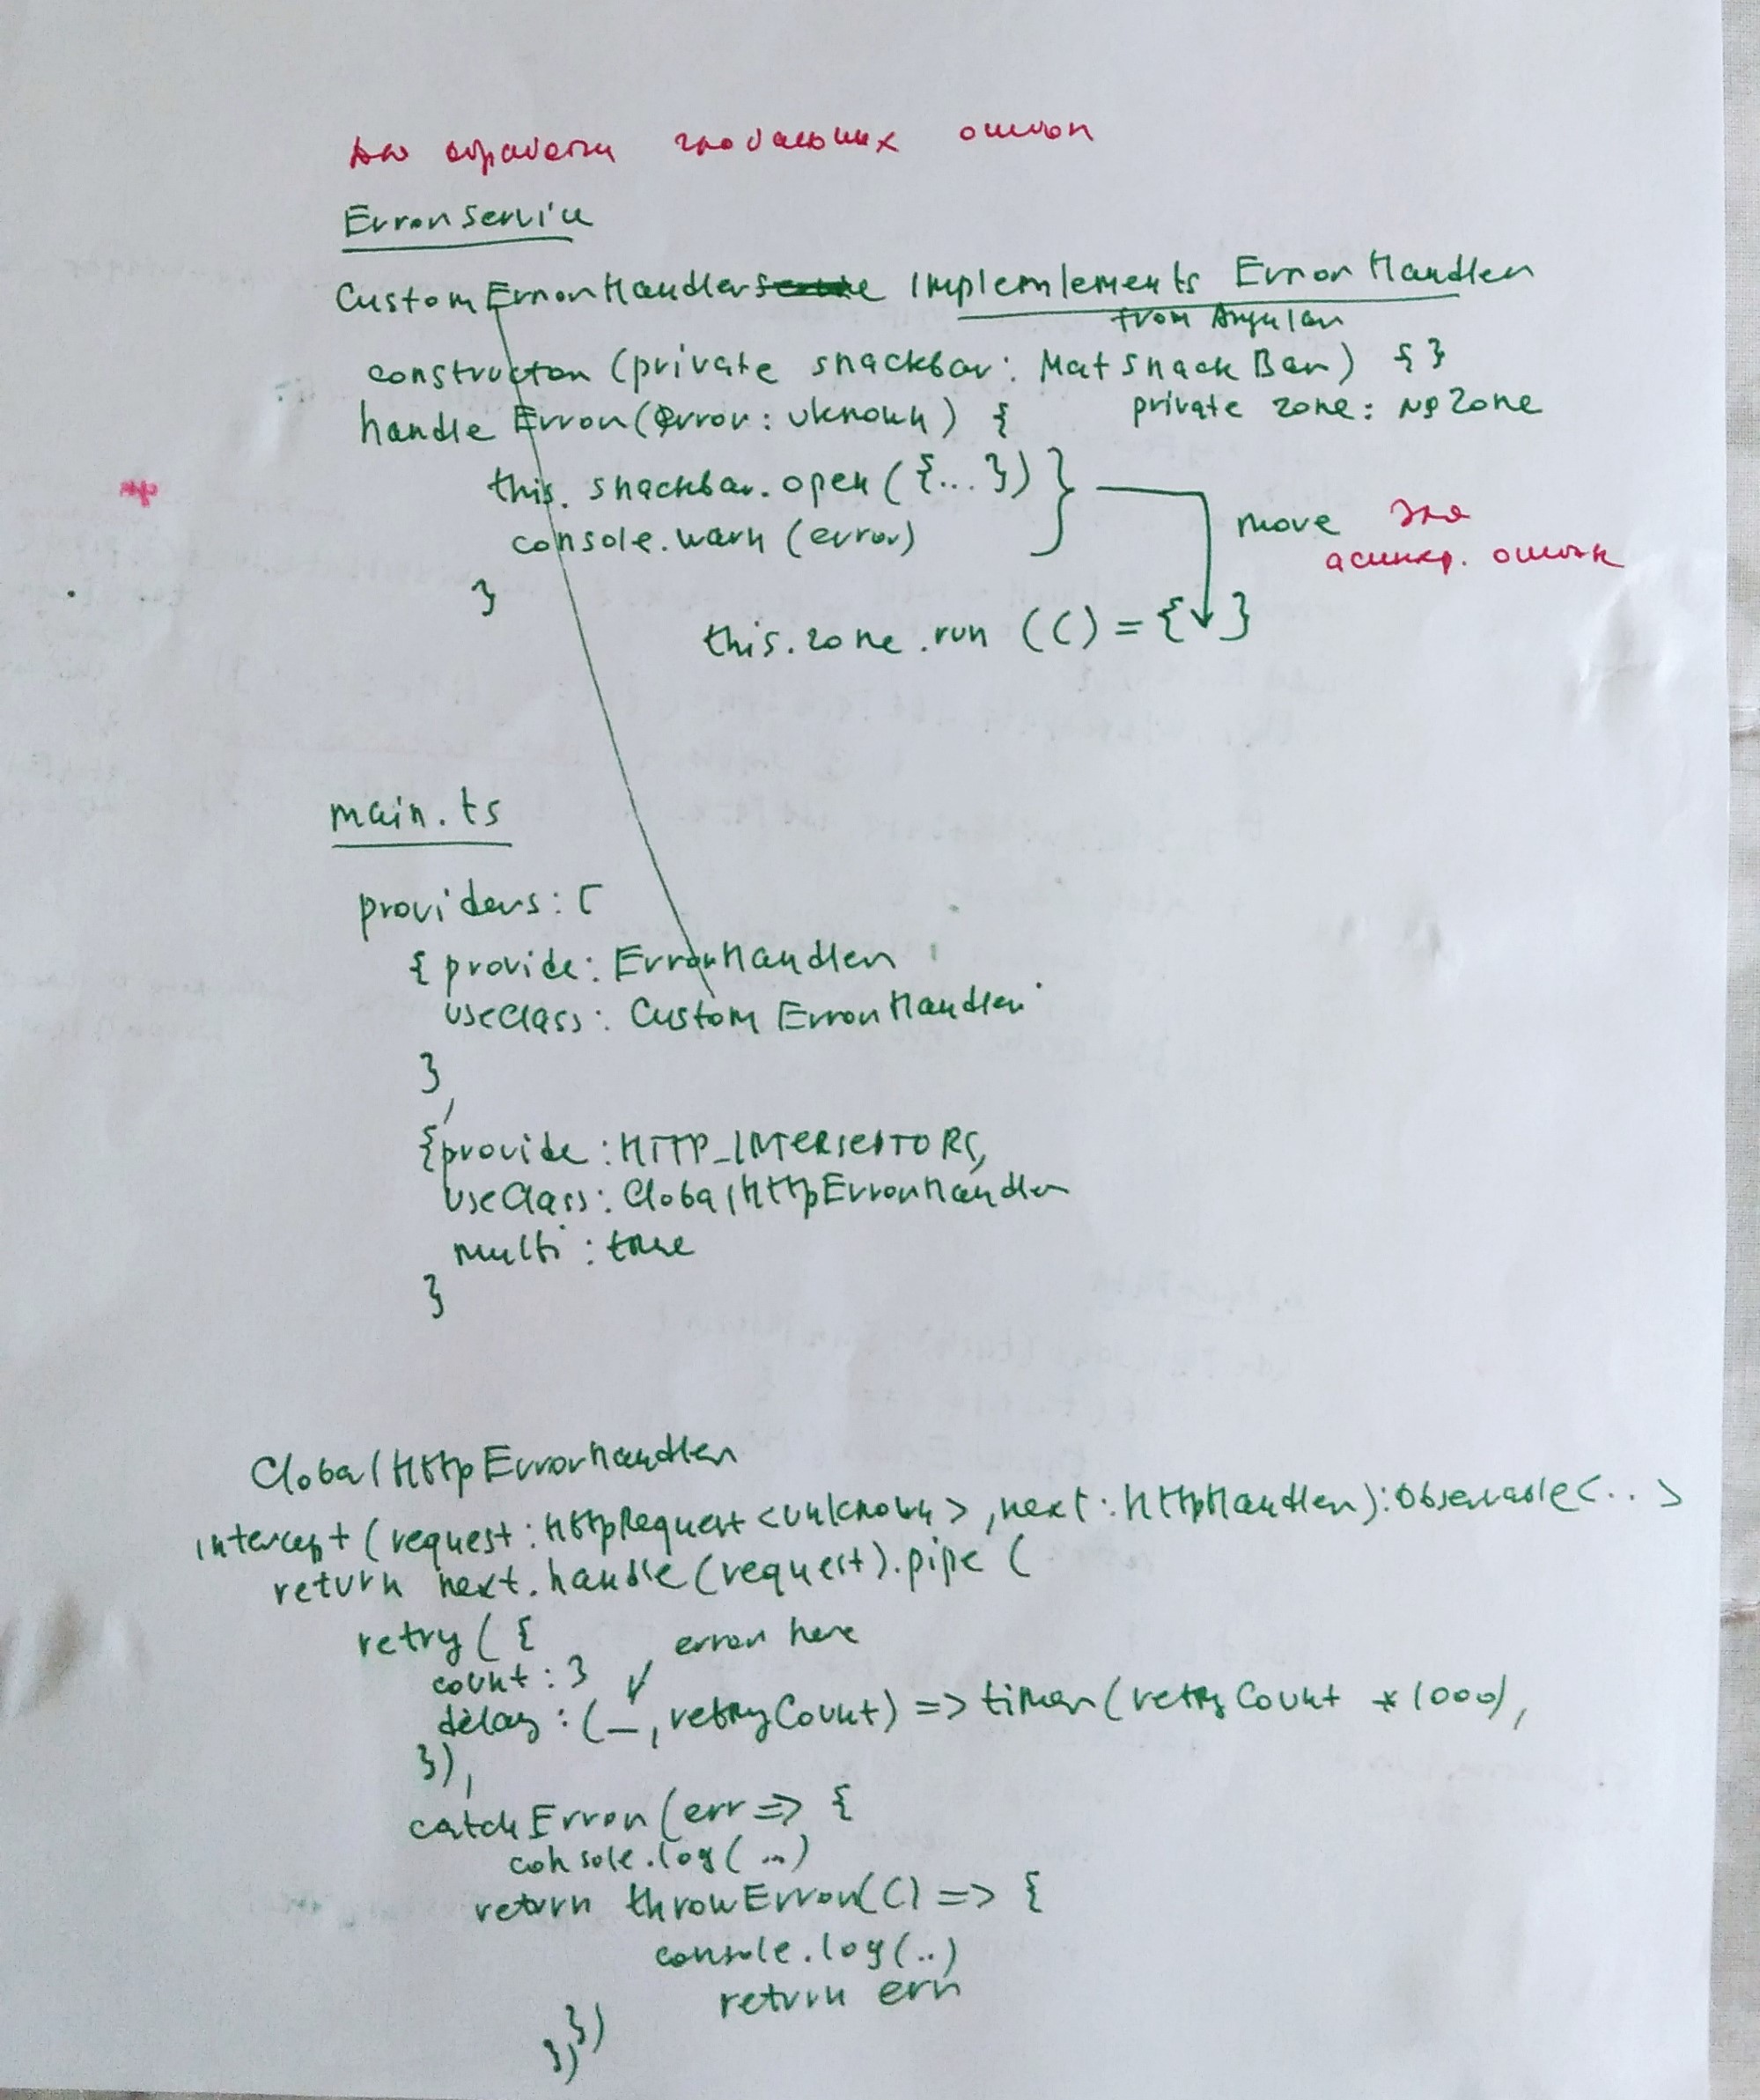 для обработки глобальных ошибок
ErrorService
CustomErrorHandler Implemlements ErrorHandler
from Angular
constructor (private snackbar: MatSnackBar) { }
private zone: NgZone
handleError(error: uknown) {
this.snackbar.open({...})
console.warn(error)
}
move для
асинхр. ошибок
this.zone.run (() = { }
main.ts
providers: [
{ provide: ErrorHandler
useClass: CustomErrorHandler
}
,
{ provide: HTTP_INTERSEPTORS,
useClass: GlobalHttpErrorHandler
multi: true
}
GlobalHttpErrorHandler
intercept(request: HttpRequest<unknown>, next: HttpHandler): Observable<..>
return next.handle(request).pipe (
retry({
error here
count: 3
delay: (_, retryCount) => timer(retryCount * 1000),
}),
catchError(err => {
console.log(...)
return throwError(() => {
console.log(..)
return err
})
})